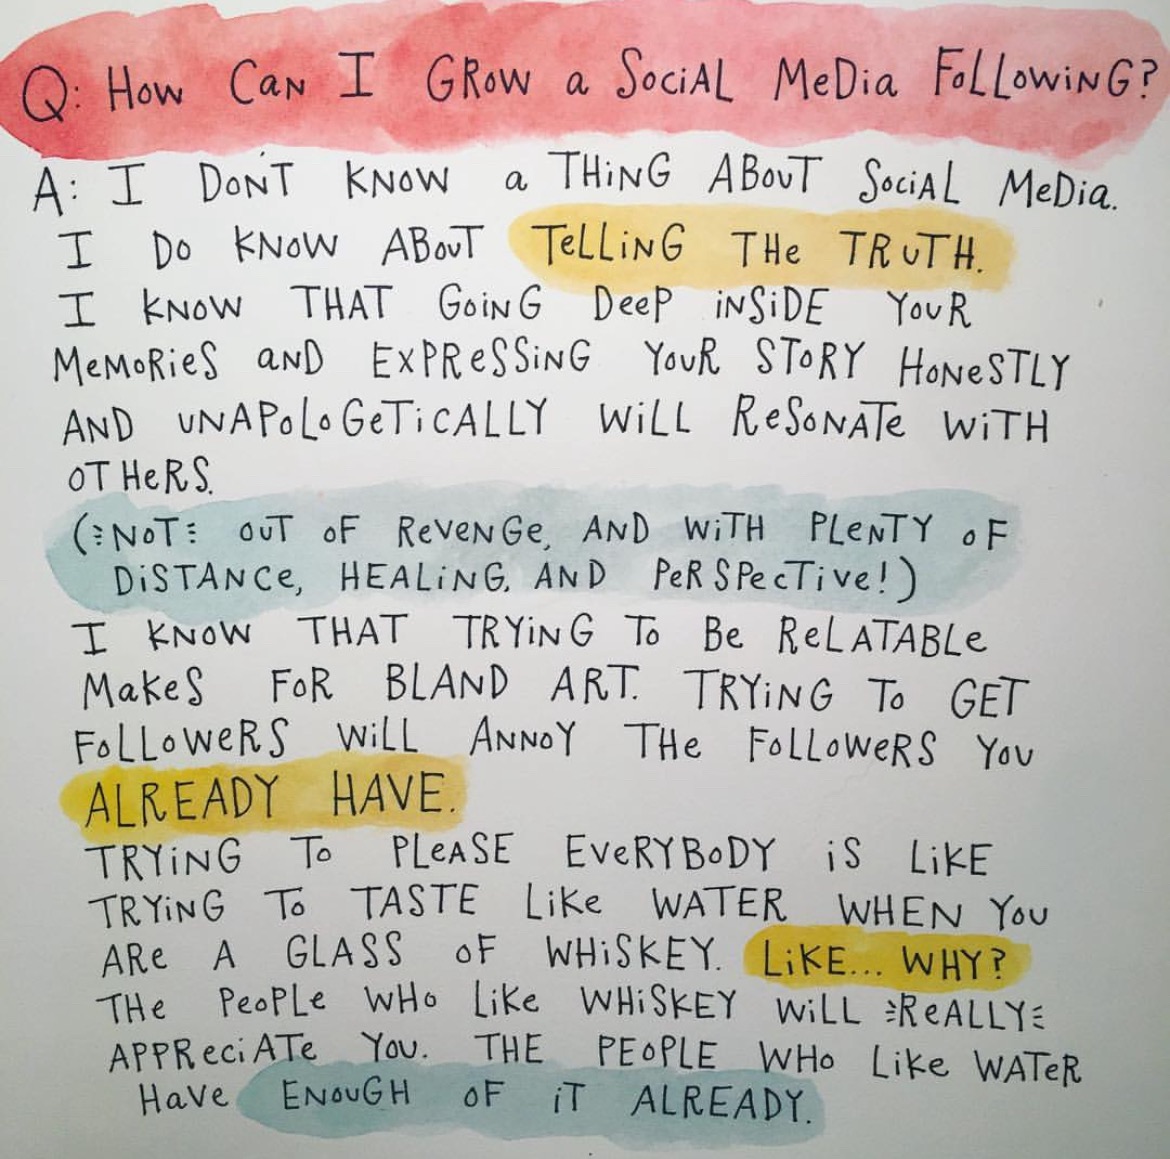 Q: HOW CAN I GROW a SOCIAL MEDIA FOLLOWING?
A: I DON'T KNOW a THING ABOUT SOCIAL MEDIA.
I DO KNOW ABOUT TELLING THE TRUTH.
I KNOW THAT GOING DEEP INSIDE YOUR
MEMORIES AND EXPRESSING YOUR STORY HONESTLY
AND UNAPOLOGETICALLY WILL RESONATE WITH
OTHERS.
(NOT OUT OF REVENGE, AND WITH PLENTY OF
DISTANCE, HEALING, AND PERSPECTIVE!)
I KNOW THAT TRYING TO BE RELATABLE
MAKES FOR BLAND ART. TRYING TO GET
FOLLOWERS WILL ANNOY THE FOLLOWERS YOU
ALREADY HAVE.
TRYING TO PLEASE EVERYBODY IS LIKE
TRYING TO TASTE LIKE WATER WHEN YOU
ARE A GLASS OF WHISKEY. LIKE... WHY?
THE PEOPLE WHO LIKE WHISKEY WILL REALLY
APPRECIATE YOU. THE PEOPLE WHO LIKE WATER
HAVE ENOUGH OF IT ALREADY.